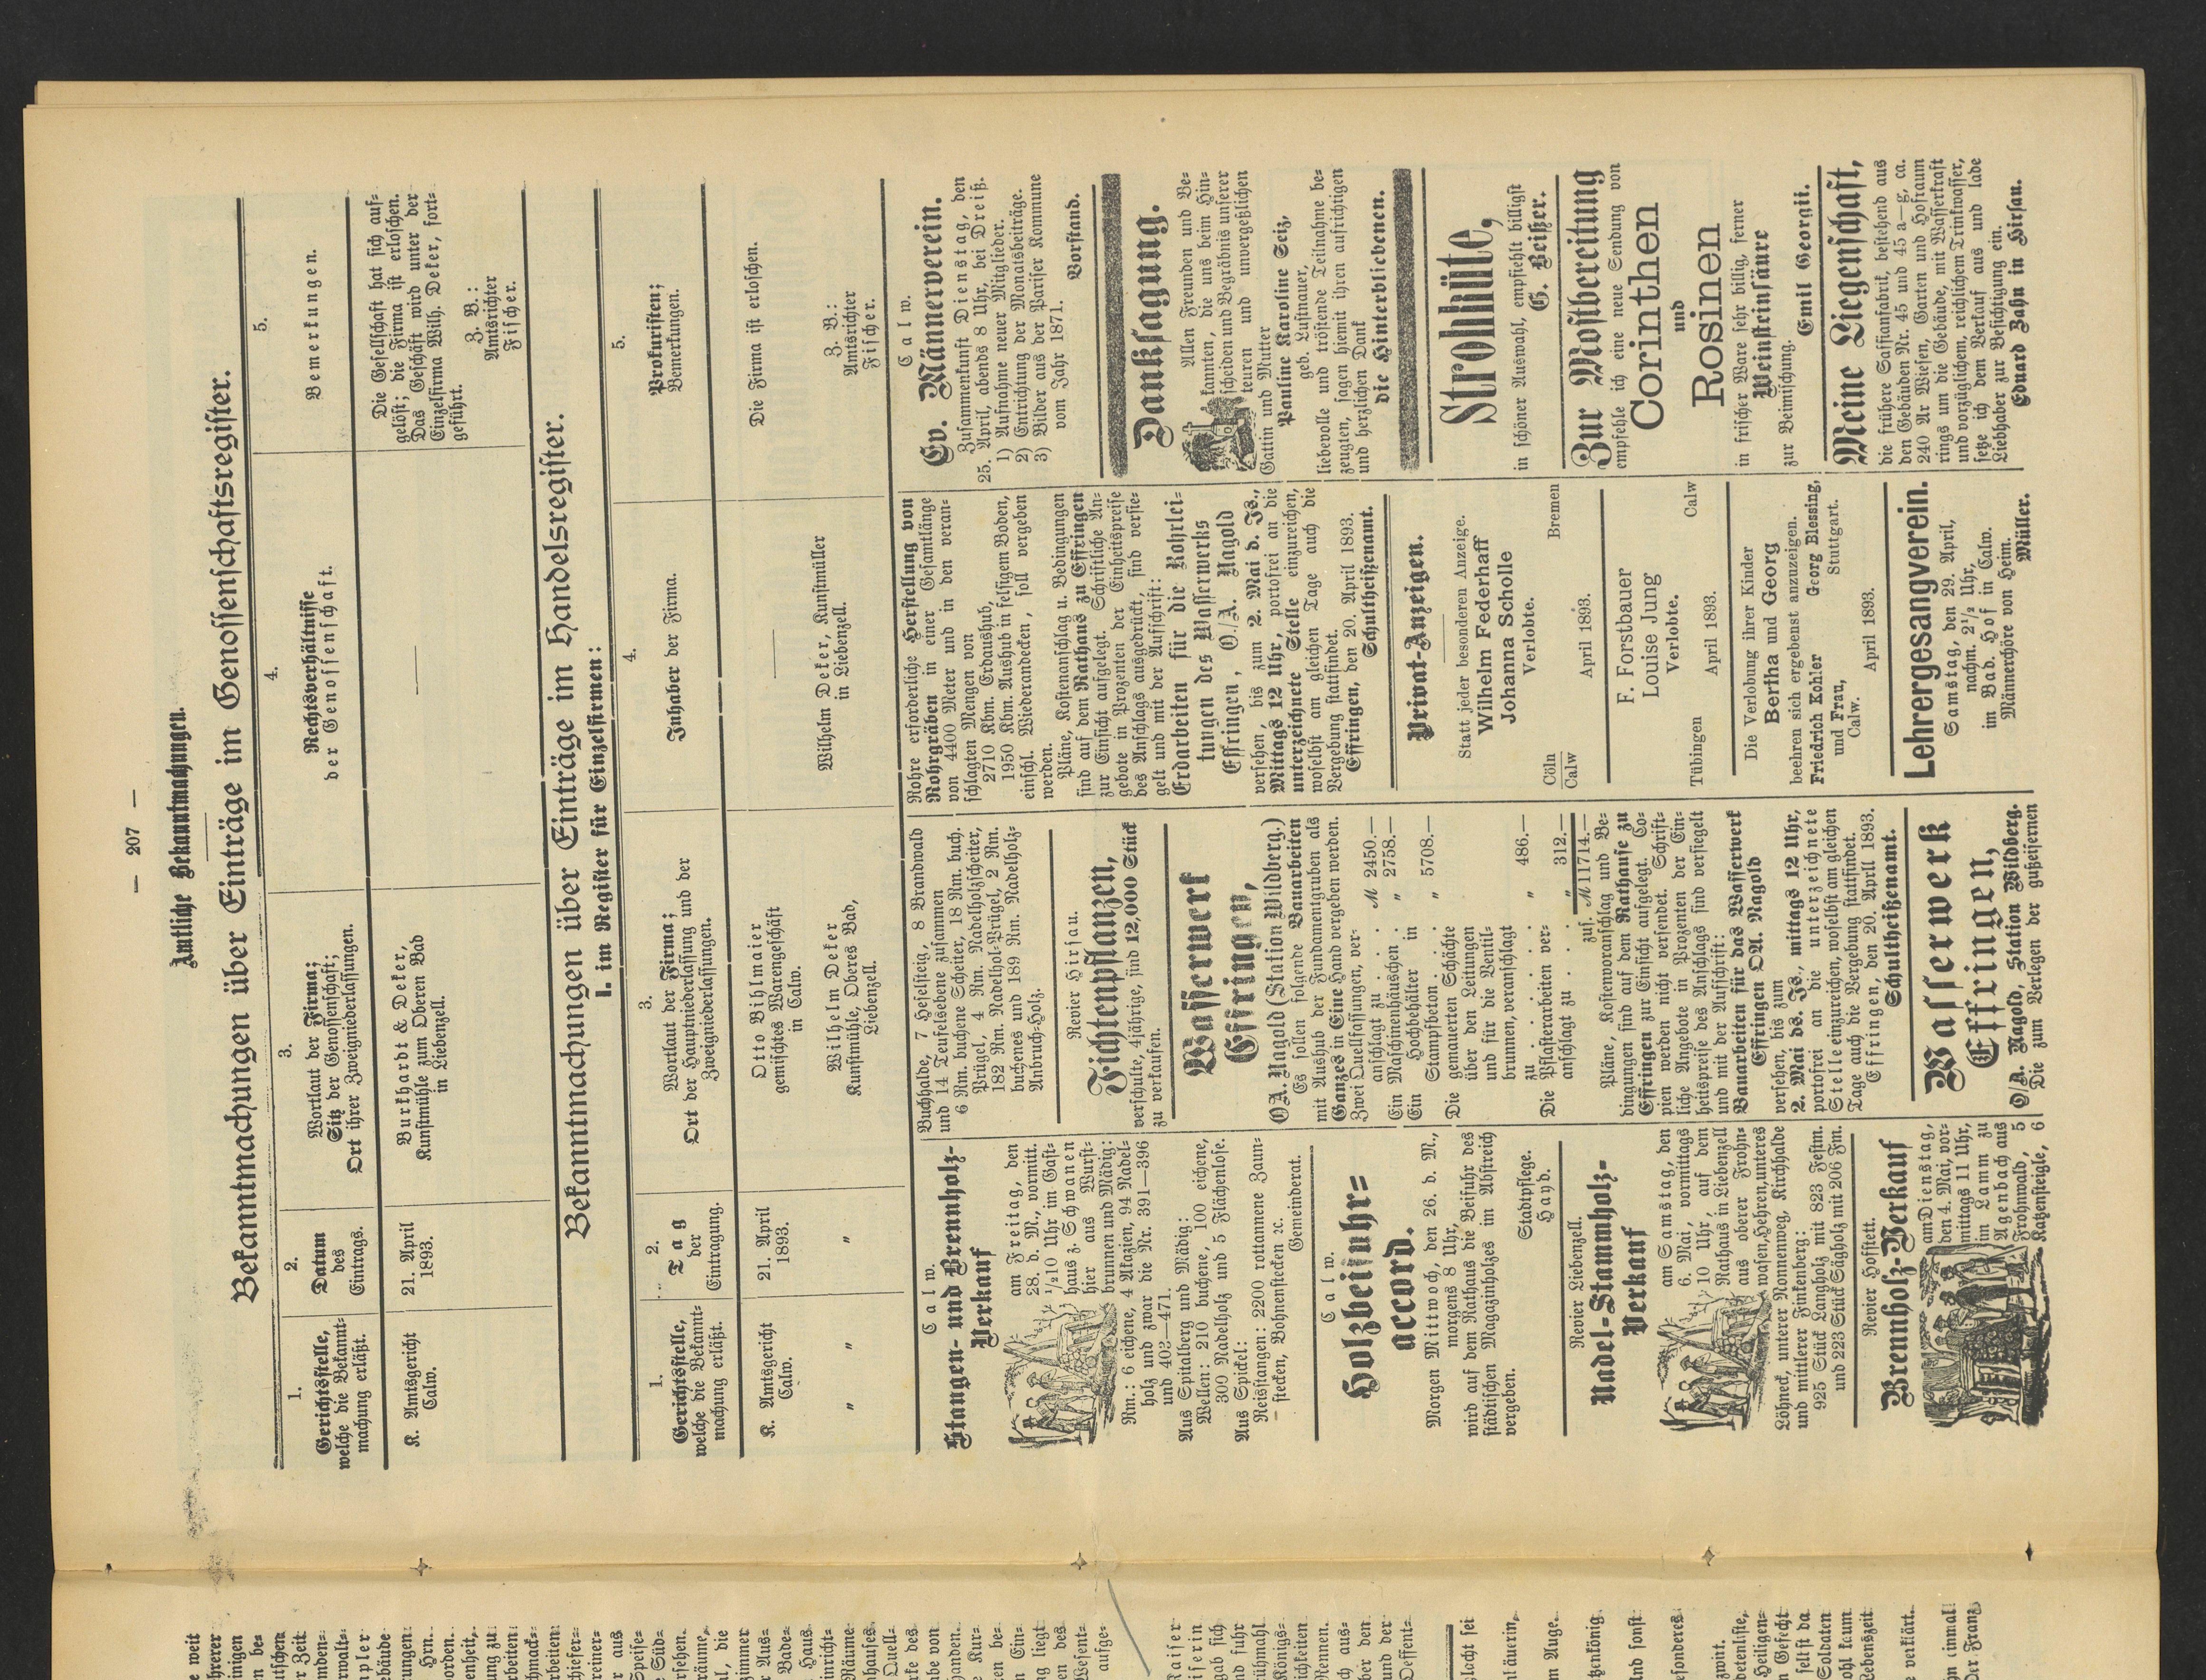 — 207 —
Amtliche Bekanntmachungen.
Bekanntmachungen über Einträge im Genossenschaftsregister.
1.
Gerichtsstelle,
welche die Bekannt-
machung erläßt.
2.
Datum
des
Eintrags.
3.
Wortlaut der Firma;
Sitz der Genossenschaft;
Ort ihrer Zweigniederlassungen.
4.
Rechtsverhältnisse
der Genossenschaft.
5.
Bemerkungen.
K. Amtsgericht
Calw.
21. April
1893.
Burkhardt & Deker,
Kunstmühle zum Oberen Bad
in Liebenzell.
—
Die Gesellschaft hat sich auf-
gelöst; die Firma ist erloschen.
Das Geschäft wird unter der
Einzelfirma Wilh. Deker, fort-
geführt.
Z. B.:
Amtsrichter
Fischer.
Bekanntmachungen über Einträge im Handelsregister.
I. im Register für Einzelfirmen:
1.
Gerichtsstelle,
welche die Bekannt-
machung erläßt.
2.
Tag
der
Eintragung.
3.
Wortlaut der Firma;
Ort der Hauptniederlassung und der
Zweigniederlassungen.
4.
Inhaber der Firma.
5.
Prokuristen;
Bemerkungen.
K. Amtsgericht
Calw.
21. April
1893.
Otto Bihlmaier
gemischtes Warengeschäft
in Calw.
—
Die Firma ist erloschen.
" "
"
Wilhelm Deker
Kunstmühle, Oberes Bad,
Liebenzell.
Wilhelm Deker, Kunstmüller
in Liebenzell.
Z. B.:
Amtsrichter
Fischer.
Calw.
Stangen- und Brennholz-
Verkauf
am Freitag, den
28. d. M., vormitt.
1/210 Uhr im Gast-
haus z. Schwanen
hier aus Wurst-
brunnen und Mädig:
Rm.: 6 eichene, 4 Akazien, 94 Nadel-
holz und zwar die Nr. 391—396
und 402—471.
Aus Spitalberg und Mädig:
Wellen: 210 buchene, 100 eichene,
300 Nadelholz und 5 Flächenlose.
Aus Spickel:
Reisstangen: 2200 rottannene Zaun-
stecken, Bohnenstecken 2c.
Gemeinderat.
Calw.
Holzbeifuhr-
accord.
Morgen Mittwoch, den 26. d. M.,
morgens 8 Uhr,
wird auf dem Rathaus die Beifuhr des
städtischen Magazinholzes im Abstreich
vergeben.
Stadtpflege.
Hayd.
Revier Liebenzell.
Nadel-Stammholz-
Verkauf
am Samstag, den
6. Mai, vormittags
10 Uhr, auf dem
Rathaus in Liebenzell
aus oberer Frohn-
wasen, Hehren, unteres
Löhneck, unterer Nonnenweg, Kirchhalde
und mittlerer Finkenberg:
925 Stück Langholz mit 823 Festm.
und 223 Stück Sägholz mit 206 Fm.
Revier Hofstett.
Brennholz-Verkauf
am Dienstag,
den 4. Mai, vor-
mittags 11 Uhr,
im Lamm zu
Agenbach aus
Frohnwald, 5
Katzensteigle, 6
Buchhalde, 7 Heselsteig, 8 Brandwald
und 14 Teufelsebene zusammen
6 Rm. buchene Scheiter, 18 Rm. buch.
Prügel, 4 Rm. Nadelholzscheiter,
182 Rm. Nadelholz-Prügel, 2 Rm.
buchenes und 189 Rm. Nadelholz-
Anbruch-Holz.
Revier Hirsau.
Fichtenpflanzen,
verschulte, 4jährige, sind 12,000 Stück
zu verkaufen.
Wasserwerk
Effringen,
OA. Nagold (Station Wildberg.)
Es sollen folgende Bauarbeiten
mit Aushub der Fundamentgruben als
Ganzes in Eine Hand vergeben werden.
Zwei Quellfassungen, ver-
anschlagt zu . . . M 2450.—
Ein Maschinenhäuschen . " 2758.—
Ein Hochbehälter in
Stampfbeton . . . " 5708.—
Die gemauerten Schächte
über den Leitungen
und für die Ventil-
brunnen, veranschlagt
zu . . . . . . " 486.—
Die Pflasterarbeiten ver-
anschlagt zu . . . " 312.—
zus. M 11714.—
Pläne, Kostenvoranschlag und Be-
dingungen sind auf dem Rathause zu
Effringen zur Einsicht aufgelegt. Co-
pien werden nicht versendet. Schrift-
liche Angebote in Prozenten der Ein-
heitspreise des Anschlags sind versiegelt
und mit der Aufschrift:
Bauarbeiten für das Wasserwerk
Effringen OA. Nagold
versehen, bis zum
2. Mai ds. Js., mittags 12 Uhr,
portofrei an die unterzeichnete
Stelle einzureichen, woselbst am gleichen
Tage auch die Vergebung stattfindet.
Effringen, den 20. April 1893.
Schultheißenamt.
Wasserwerk
Effringen,
O/A. Nagold, Station Wildberg.
Die zum Verlegen der gußeisernen
Rohre erforderliche Herstellung von
Rohrgräben in einer Gesamtlänge
von 4400 Meter und in den veran-
schlagten Mengen von
2710 Kbm. Erdaushub,
1950 Kbm. Aushub in felsigem Boden,
einschl. Wiederandecken, soll vergeben
werden.
Pläne, Kostenanschlag u. Bedingungen
sind auf dem Rathaus zu Effringen
zur Einsicht aufgelegt. Schriftliche An-
gebote in Prozenten der Einheitspreise
des Anschlags ausgedrückt, sind versie-
gelt und mit der Aufschrift:
Erdarbeiten für die Rohrlei-
tungen des Wasserwerks
Effringen, O./A. Nagold
versehen, bis zum 2. Mai d. Js.,
Mittags 12 Uhr, portofrei an die
unterzeichnete Stelle einzureichen,
woselbst am gleichen Tage auch die
Vergebung stattfindet.
Effringen, den 20. April 1893.
Schultheißenamt.
Privat-Anzeigen.
Statt jeder besonderen Anzeige.
Wilhelm Federhaff
Johanna Scholle
Verlobte.
Cöln
Calw
Bremen
April 1893.
F. Forstbauer
Louise Jung
Verlobte.
Tübingen
Calw
April 1893.
Die Verlobung ihrer Kinder
Bertha und Georg
beehren sich ergebenst anzuzeigen.
Friedrich Kohler
und Frau,
Calw.
Georg Blessing,
Stuttgart.
April 1893.
Lehrergesangverein.
Samstag, den 29. April,
nachm. 2 1/2 Uhr,
im Bad. Hof in Calw.
Männerchöre von Heim.
Müller.
Calw.
Ev. Männerverein.
Zusammenkunft Dienstag, den
25. April, abends 8 Uhr, bei Dreiß.
1) Aufnahme neuer Mitglieder.
2) Entrichtung der Monatsbeiträge.
3) Bilder aus der Pariser Kommune
vom Jahr 1871.
Vorstand.
Danksagung.
Allen Freunden und Be-
kannten, die uns beim Hin-
scheiden und Begräbnis unserer
teuren und unvergeßlichen
Gattin und Mutter
Pauline Karoline Seiz,
geb. Lustnauer,
liebevolle und tröstende Teilnahme be-
zeugten, sagen hiemit ihren aufrichtigen
und herzlichen Dank
die Hinterbliebenen.
Strohhüte,
in schöner Auswahl, empfiehlt billigst
G. Beißer.
Zur Mostbereitung
empfehle ich eine neue Sendung von
Corinthen
und
Rosinen
in frischer Ware sehr billig, ferner
Weinsteinsäure
zur Beimischung.
Emil Georgii.
Meine Liegenschaft,
die frühere Saffianfabrik, bestehend aus
den Gebäuden Nr. 45 und 45 a—g, ca.
240 Ar Wiesen, Garten und Hofraum
rings um die Gebäude, mit Wasserkraft
und vorzüglichem, reichlichem Trinkwasser,
setze ich dem Verkauf aus und lade
Liebhaber zur Besichtigung ein.
Eduard Zahn in Hirsau.